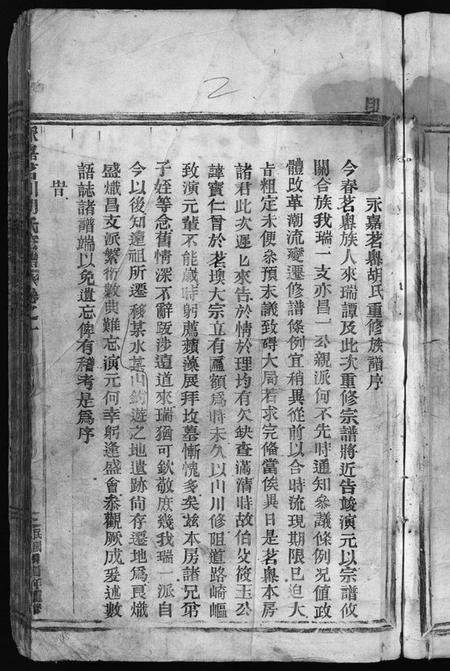 2
印
永嘉茗嶴胡氏重修族譜序
今春茗嶴族人來瑞譚及此次重修宗譜將近告竣演元以宗譜攸
關合族我瑞一支亦昌一公親派何不先時通知參議條例况值政
體改革潮流變遷修譜條例宜稍異從前以合時流現期限已迫大
㫖粗定未便叅預末議致碍大局若求完偹當俟異日是茗嶴本房
諸君此次遲乚來告於情於理均有欠缺查滿清時故伯父筱玉公
諱寶仁曾於茗墺大宗立有匾額爲時未久以山川修阻道路崎嶇
致演元輩不能歲時躬薦蘋藻展拜坟墓慚愧多矣玆本房諸兄弟
子姪等念舊情深不辭跋涉遠道來瑞猶可欽敬庶幾我瑞一派自
今以後知遠祖所遷移某水某山釣遊之地遺跡尙存遷地爲良熾
盛熾昌支派繁衍數典難忘演元何幸躬逢盛會叅觀厥成爰述數
語誌諸譜端以免遺忘俾有稽考是爲序
旹